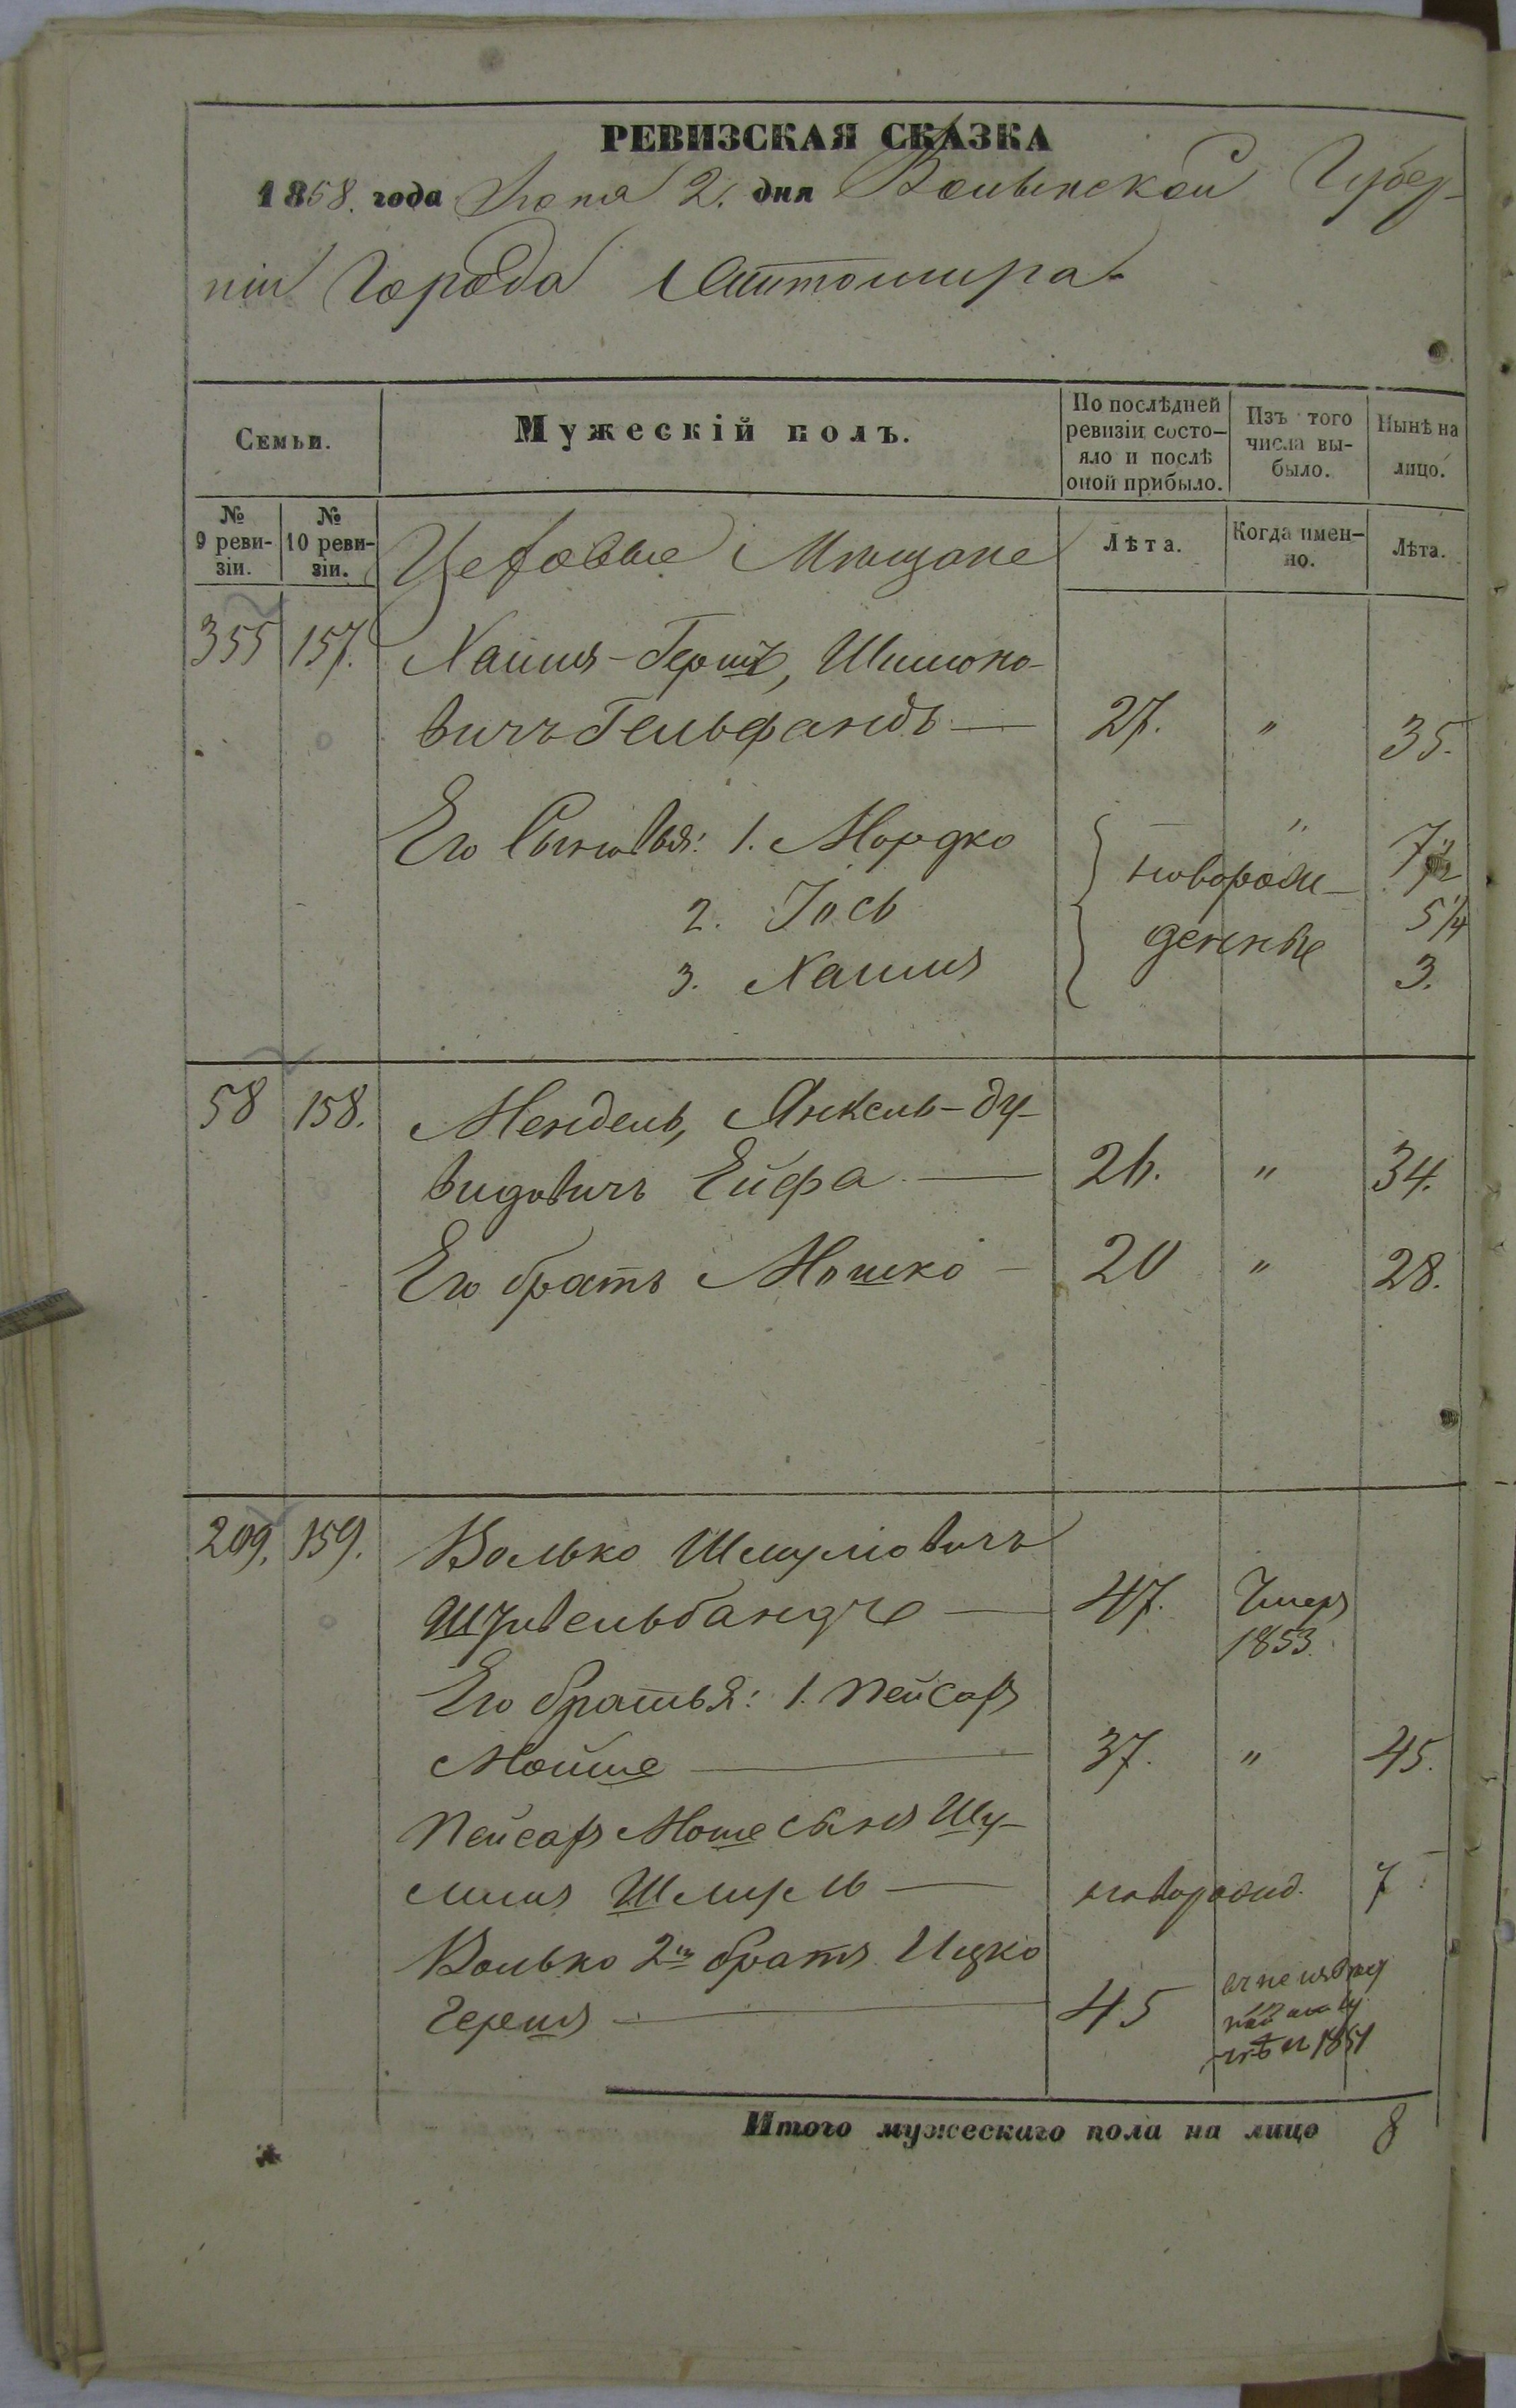 РЕВИЗСКАЯ СКАЗКА
1858. года Іюня 2. дня Волынской Губер-
ніи Города Житомира.
Семьи.
Мужескій полъ.
По послѣдней ревизіи состо-
яло и послѣ оной прибыло.
Изъ того числа вы-
было.
Нынѣ на лицо.
№ 9 реви-
зіи.
№ 10 реви-
зіи.
Цеховые Мѣщане
Лѣта.
Когда имен-
но.
Лѣта.
355 157. Хаимъ-Гершъ, Шимоно-
вичъ Гельфандъ — 27. " 35.
Его Сыновья: 1. Мордко — " 7 1/2
новорож-
2. Іось 5 1/4
денные
3. Хаимъ 3.
58 158. Мендель, Янкель-Ду-
видовичъ Ейфа — 26. " 34.
Его братъ Мошко — 20 " 28.
209. 159. Волько Шмулiовичъ
47. Умеръ
1853.
Его братья: 1. Пейсах
Мойше — 37. " 45.
Пейсахъ Моше сынъ Шу-
лимъ Шмуль — новорожд. 7
Волько 2й братъ Ицко
Гершъ — 45
1851
Итого мужескаго пола на лицо 8